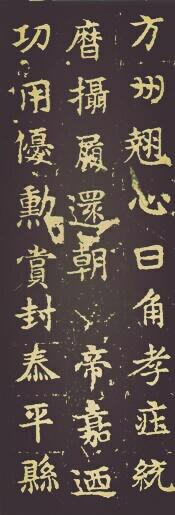 方州翹心日角孝庄統
暦攝屩還朝 帝嘉迺
功用優勲賞封泰平縣